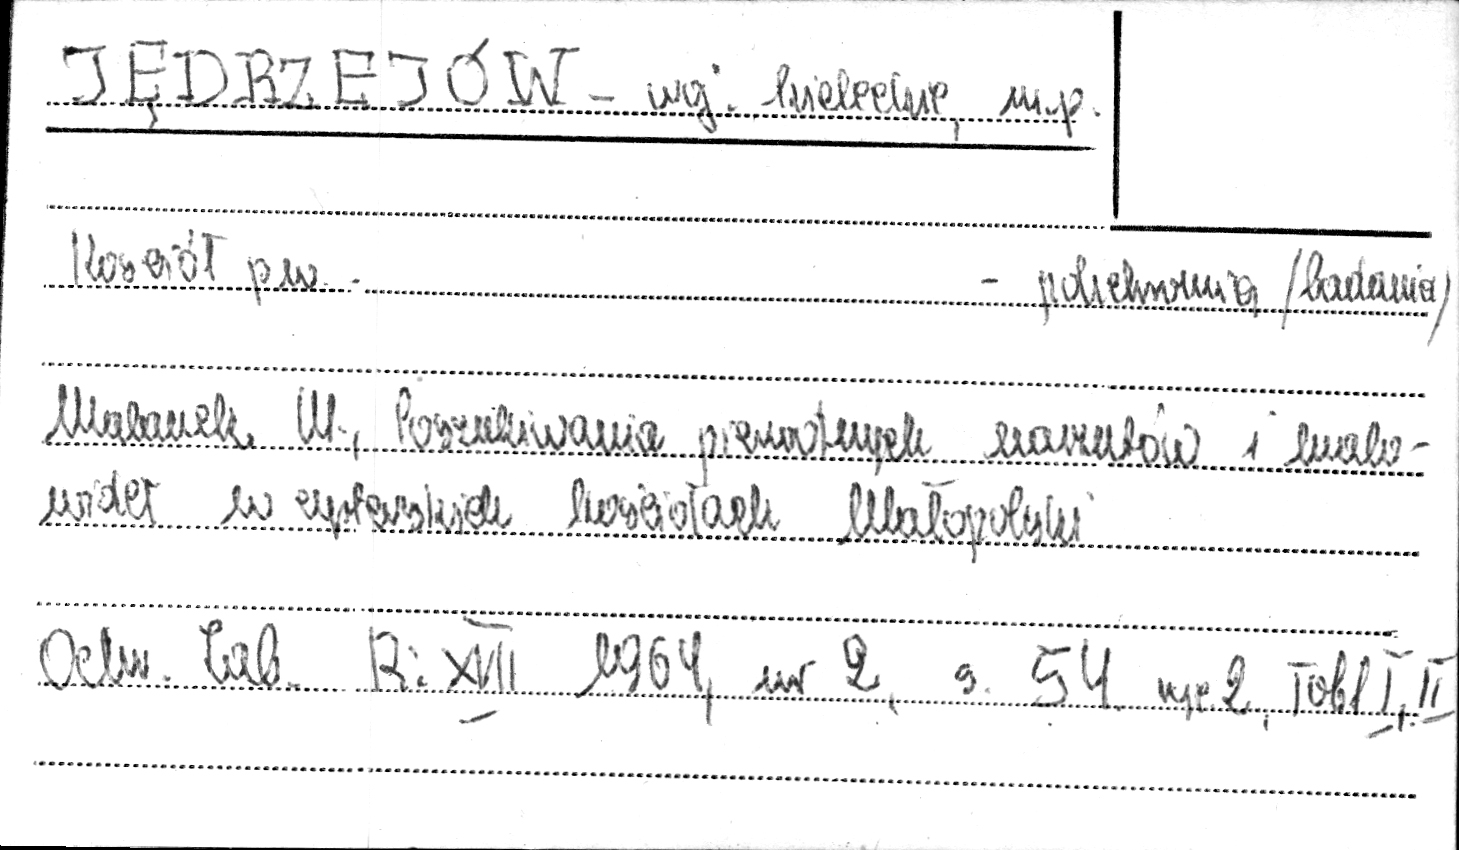 JĘDRZEJÓW - woj. kieleckie, m.p.
Kościół pw. - - polichromia /badania/
Makarek M., Poszukiwania pierwotnych narzutów i malo-
wideł w cysterskich kościołach Małopolski
Ochr. Zab. R: XVII 1964, nr 2, s. 54 ryc 2, Tabl I, II